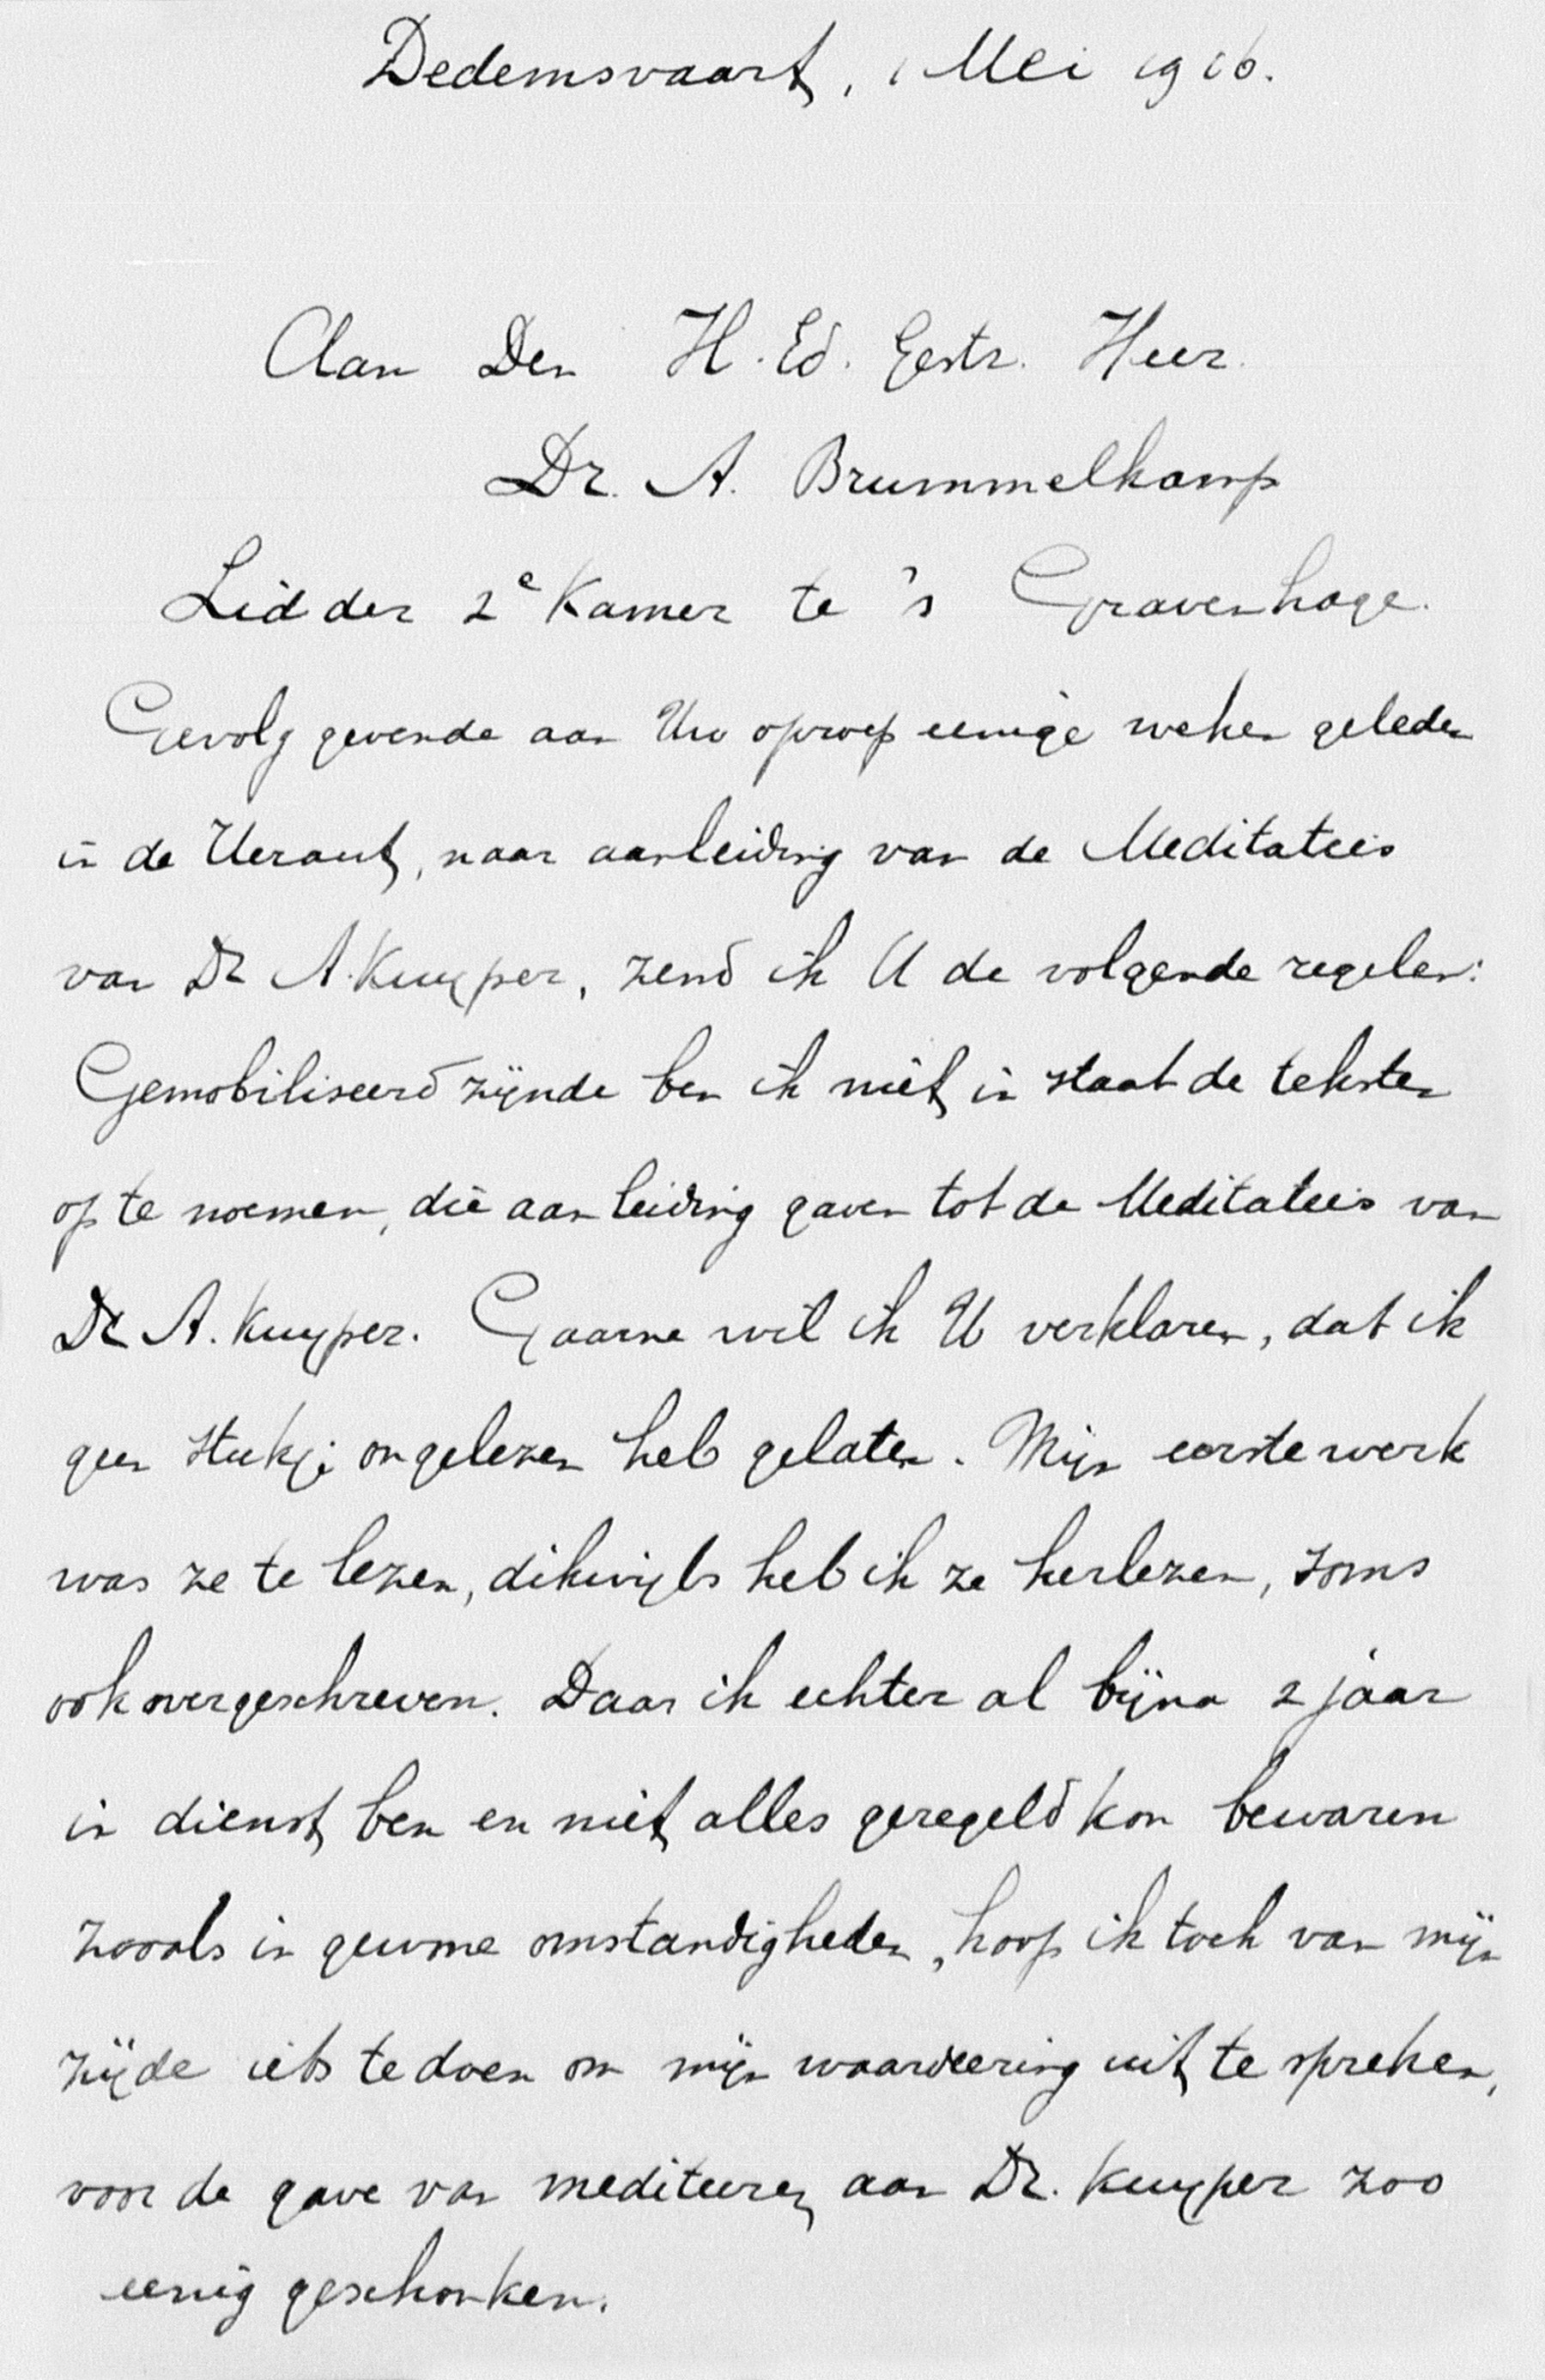 Dedemsvaart, 1 Mei 1916.
Aan Den H. Ed. Gestr. Heer.
Dr. A. Brummelkamp
Lid der 2e Kamer te 's Gravenhage.
Gevolg gevende aan Uw oproep eenige weken geleden
in de Heraut, naar aanleiding van de Meditaties
van Dr A. Kuyper, zend ik U de volgende regelen:
Gemobiliseerd zijnde ben ik niet in staat de teksten
op te noemen, die aanleiding gaven tot de Meditaties van
Dr A. Kuyper. Gaarne wil ik U verklaren, dat ik
geen stukje ongelezen heb gelaten. Mijn eerste werk
was ze te lezen, dikwijls heb ik ze herlezen, soms
ook overgeschreven. Daar ik echter al bijna 2 jaar
in dienst ben en niet alles geregeld kon bewaren
zooals in gewone omstandigheden, hoop ik toch van mijn
zijde iets te doen om mijn waardeering uit te spreken,
voor de gave van mediteeren aan Dr. Kuyper zoo
eenig geschonken.